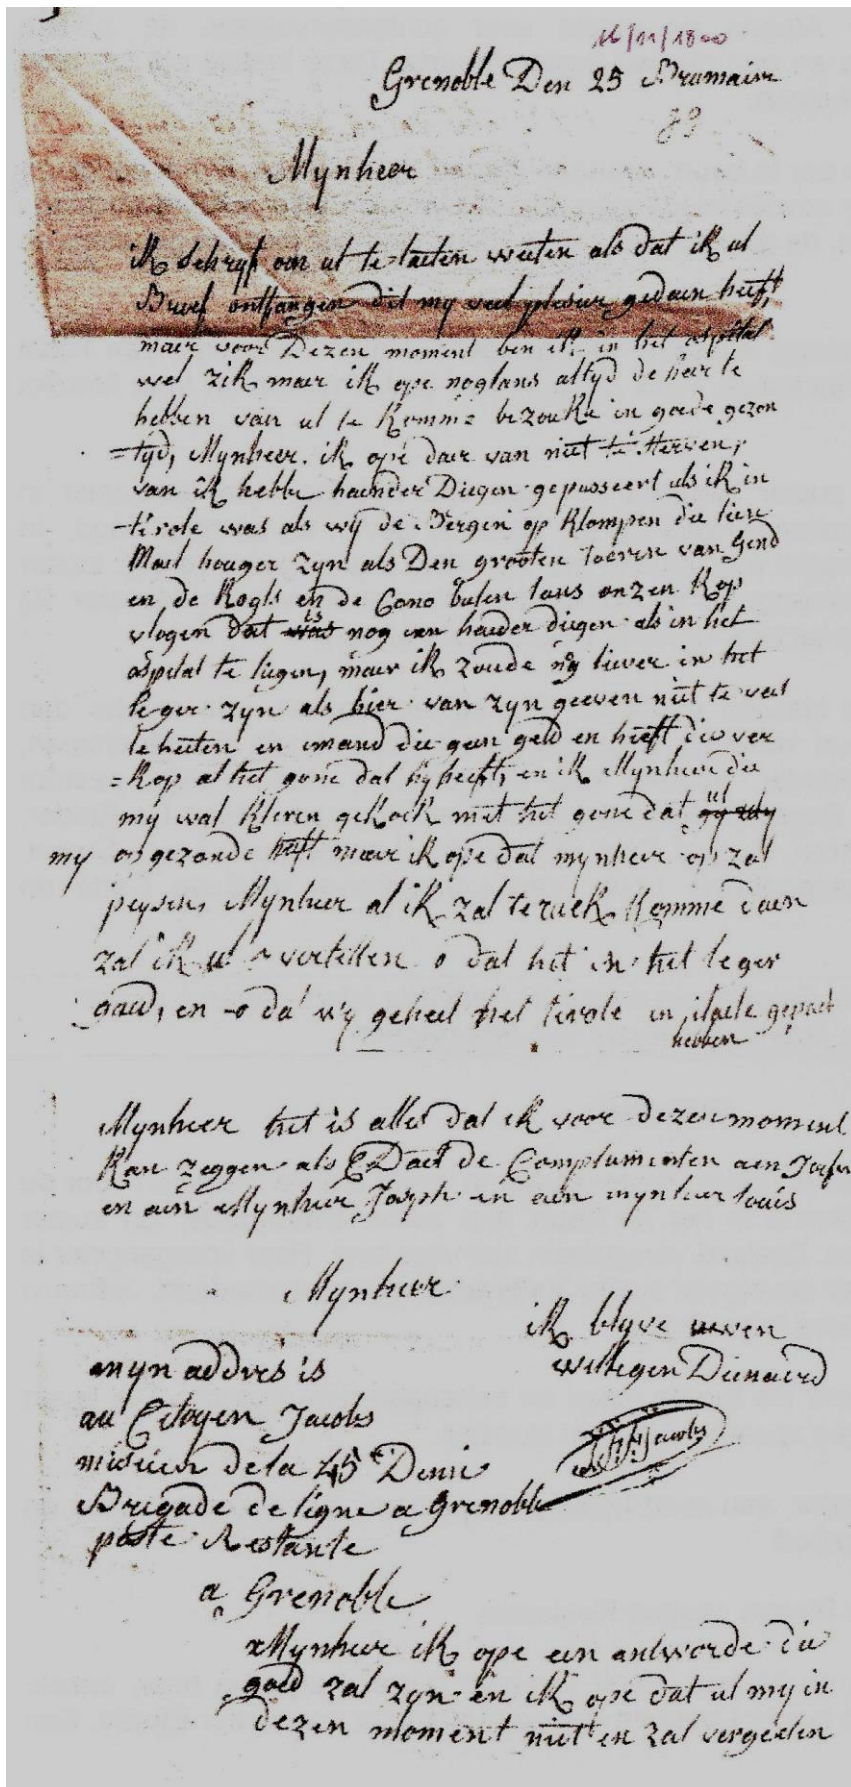 16/11/1800
Grenoble Den 25 Brumaire
89
Mynheer
ik schryf om ul te laeten weeten als dat ik ul
Brief ontfangen dit my veel plesier gedaen heeft,
maer voor Dezen moment ben ik in het ospital
wel zik maer ik ope nogtans altyd de heer te
hebben van ul te komme bezouke in goede gezon
=tyd, Mynheer. ik ope daer van niet te sterven,
van ik hebbe haender Diegen gepasseert als ik in
tirole was als wy de Bergen op klompen die tien
Mael hooger zyn als Den grooten toeren van Gend
en de kogls en de Cano balen lans onzen kop
vlogen dat was is nog een haeder diegen als in het
ospital te liegen, maer ik zoude nog liever in het
leger zyn als hier van zyn geeven niet te veel
te heeten en imand die geen geld en heeft die ver
=kop al het gone dat hy heeft, en ik Mynheer die
my wat kleren gekock met het gone dat ul gy
my op gezonde heeft maer ik ope dat mynheer op zal
peysen, Mynheer al ik zal teruck komme daen
zal ik ul vertellen o dat het in het leger
gaed, en o da wy geheel het tirole en itaele gepact
hebben
Mynheer het is alles dat ik voor dezen moment
kan zeggen als Daet de Complumenten aen
en aen Mynheer Joseph en aen mynheer louis
Mynheer
ik blyve uwen
willegen Dienaerd
Jacobs
myn addres is
au Citoyen Jacobs
de la 45e Demi
Brigade de ligne a Grenoble
poste Restante
a Grenoble
Mynheer ik ope een antworde die
goed zal zyn en ik ope dat ul my in
dezen moment niet en zal vergeeten